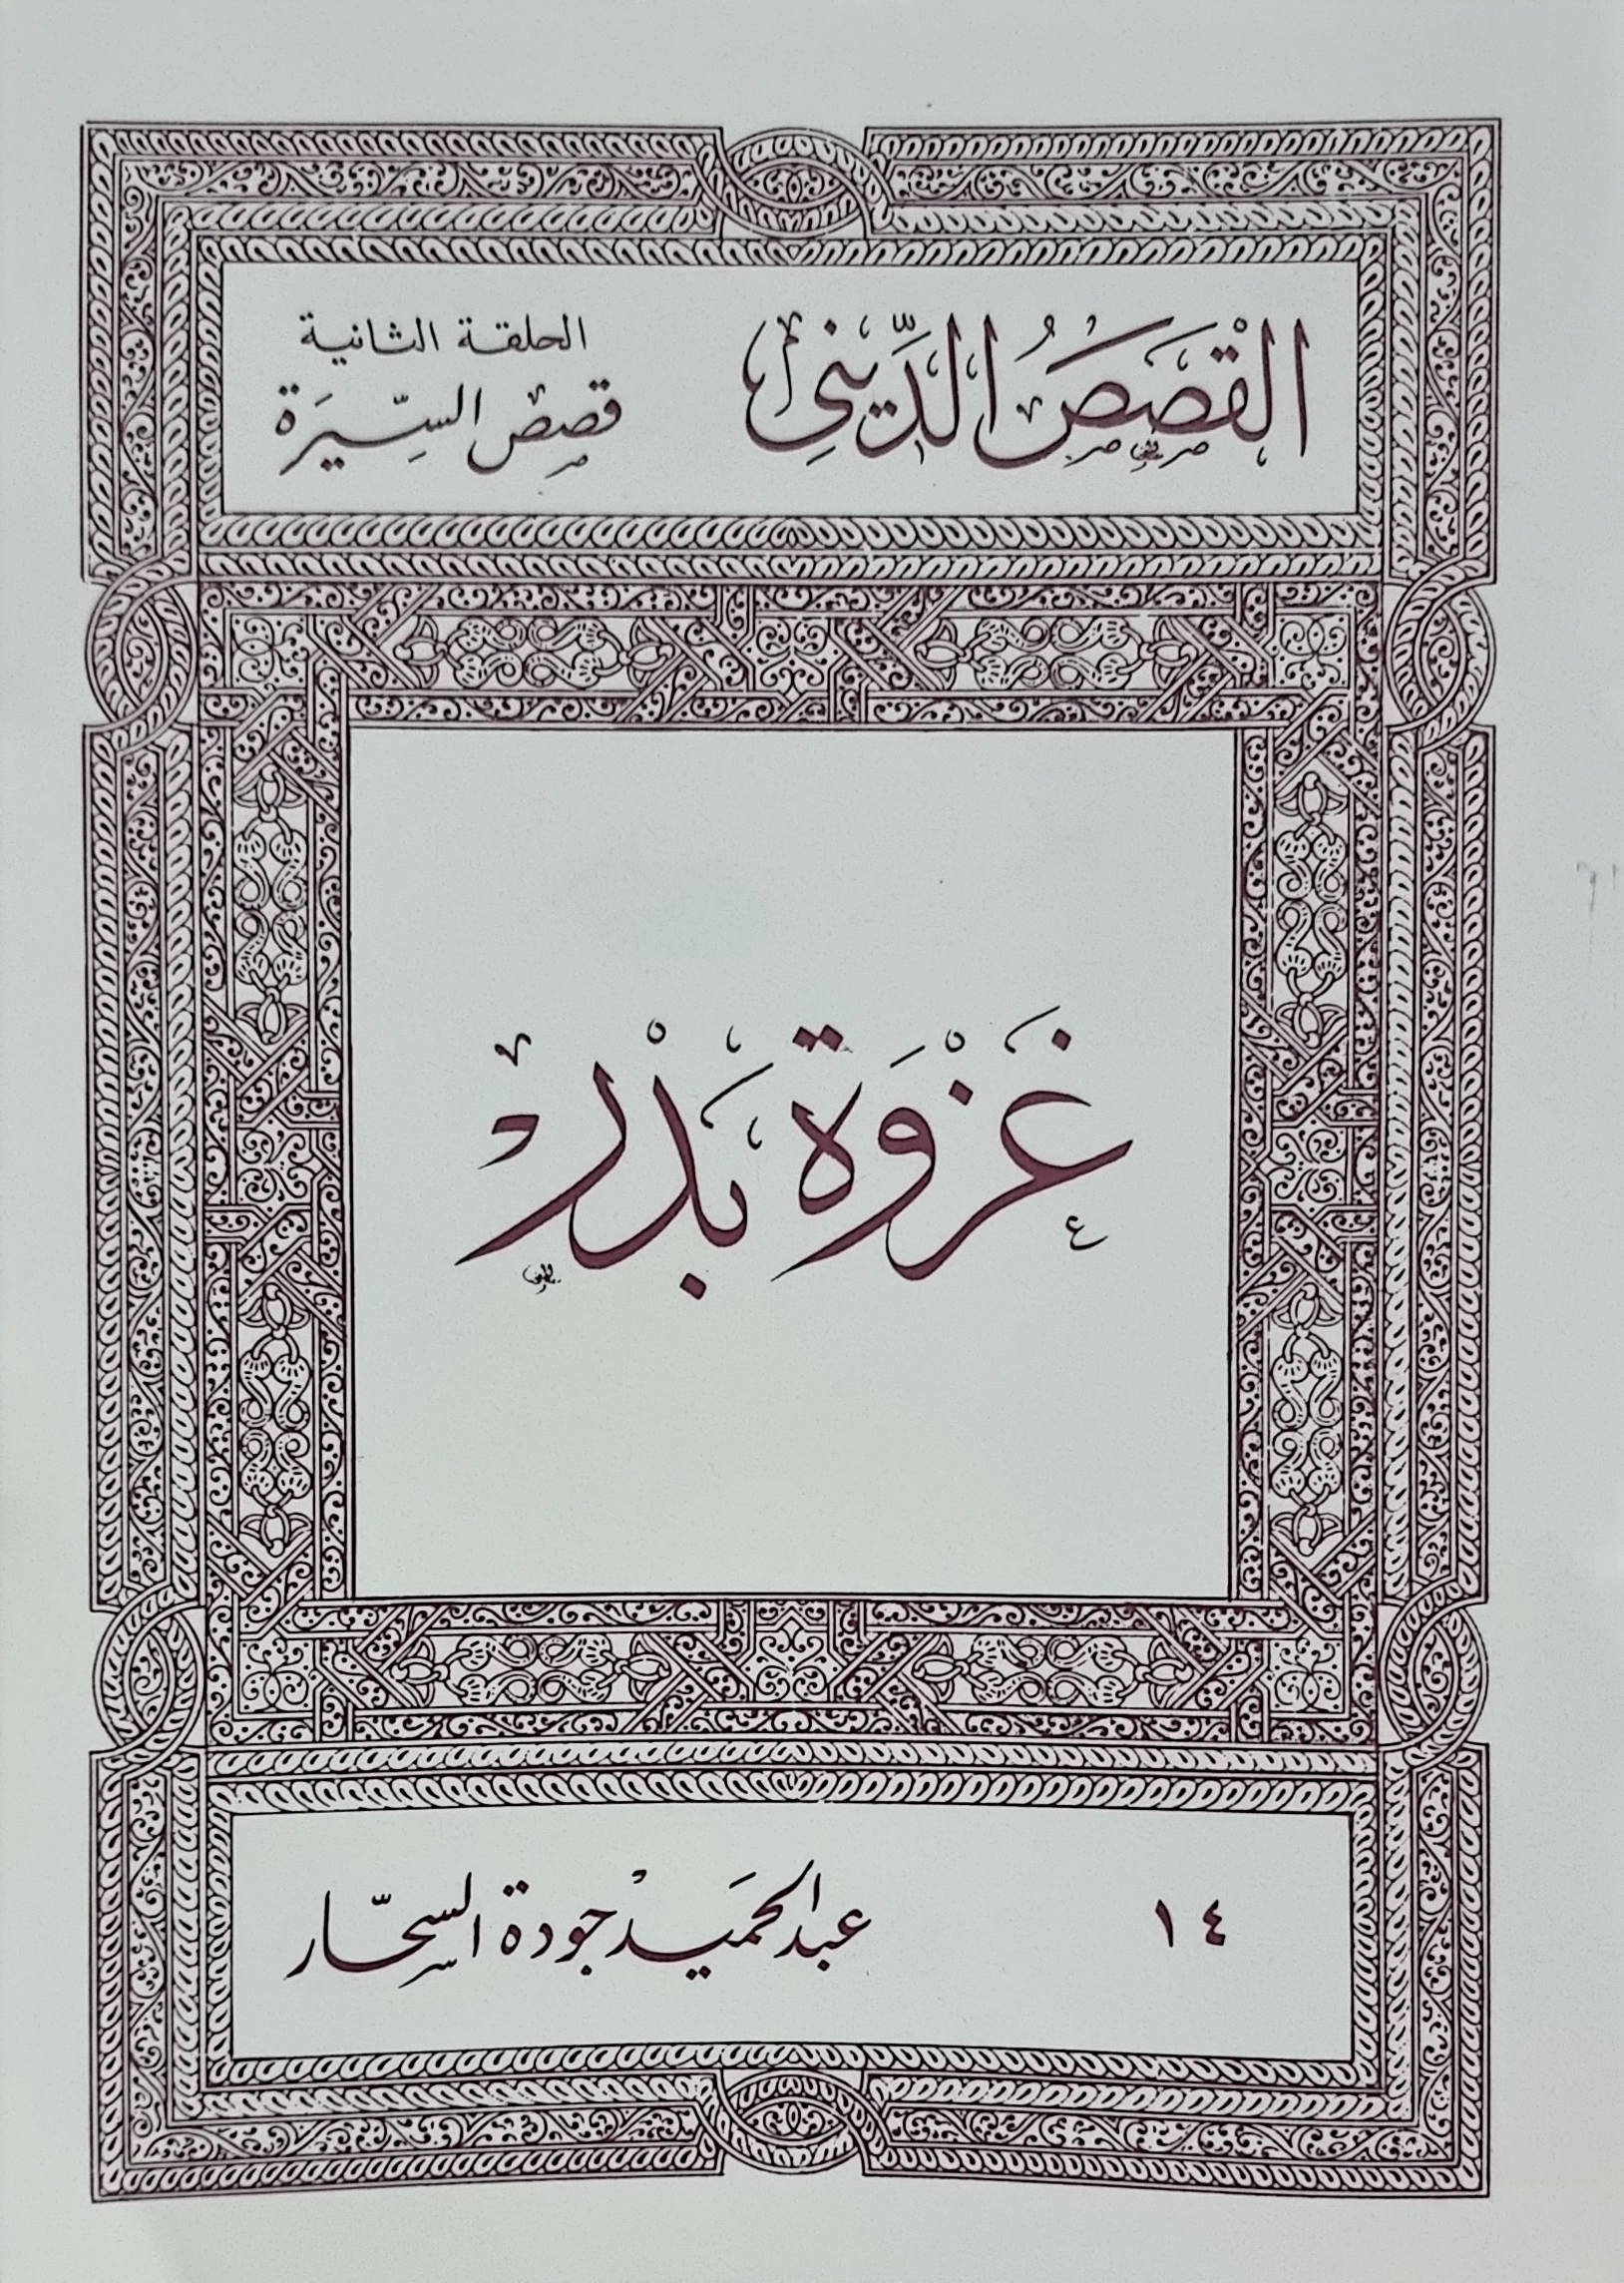 القصَصُ الدِّينِي
الحلقة الثانية
قصص السِّيرَة
غَزْوَة بَدْر
١٤
عبد الحَميد جودة السحّار